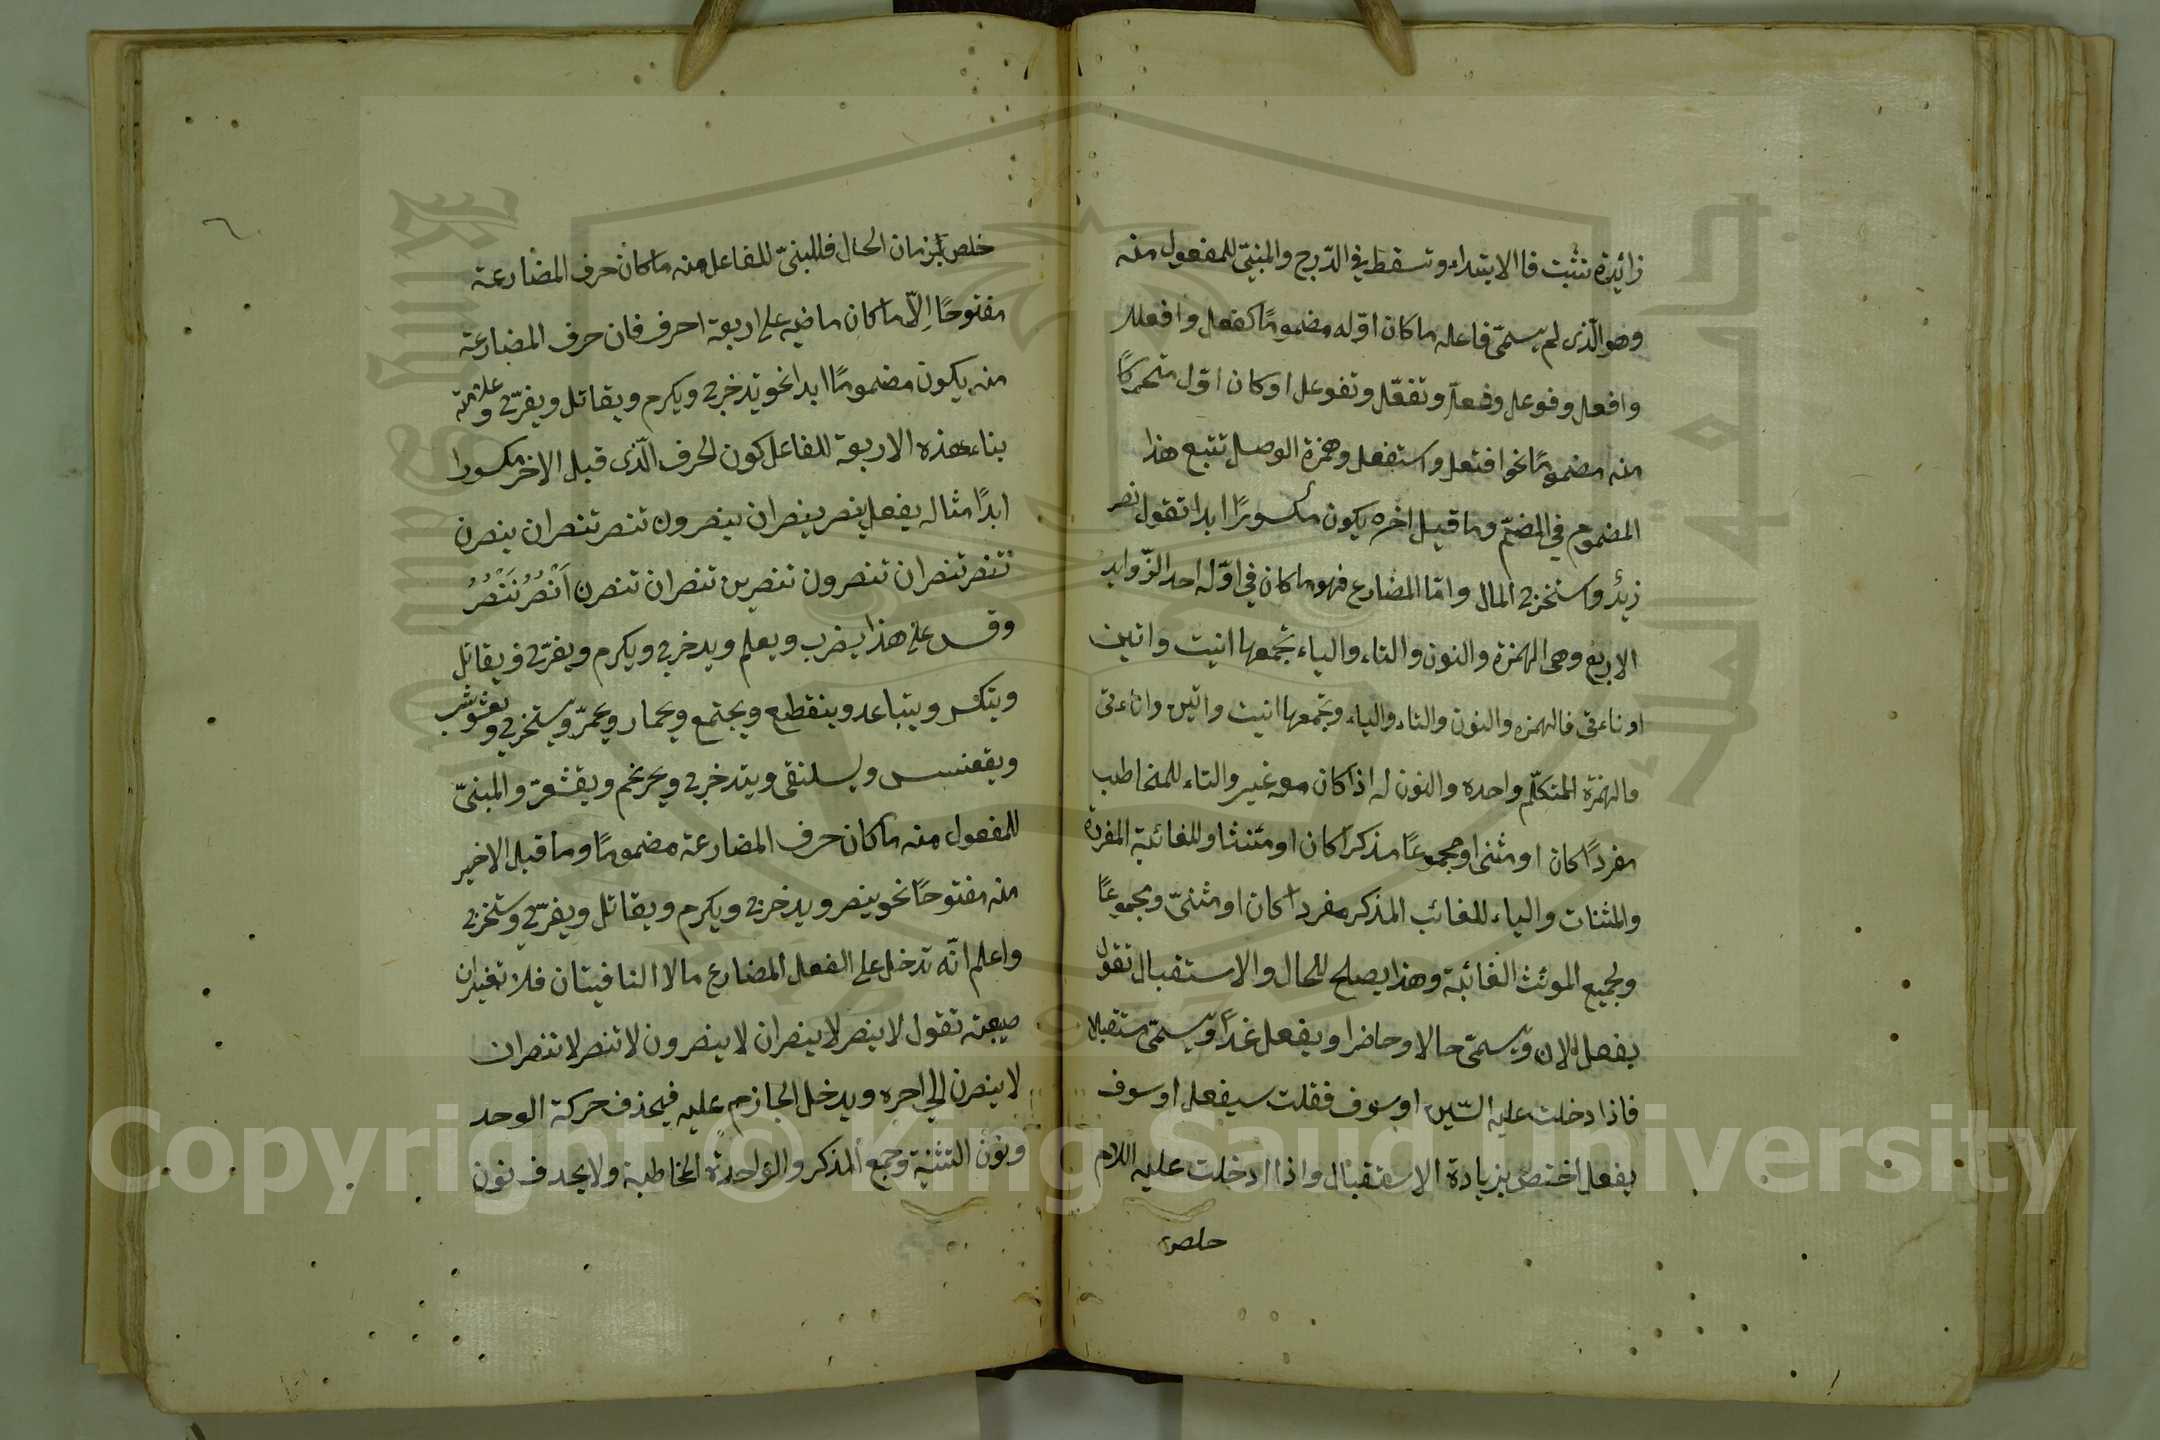 زائيدة تثبت فا الابتداء وتسقط في الدّرج والمبنيّ للمفعول منه
وهو الّذى لم يسمّى فاعله ما كان اوّله مضمومًا كفعل وافعلل
وافعل وفوعل وفعلّ وتفعّل وتفوعل او كان اوّل متحركًا
منه مضمومًا نحو افتعل واستفعل وهمزة الوصل تتبع هذا
المضموم في الضمّ وما قبل اخره يكون مكسورًا ابدا تقول نصر
زيدٌ واستخرج المال وامّا المضارع فهو ما كان في اوّله احد الزّوايد
الاربع وهى الهمزة والنون والتاء والياء تجمعها انيت واتين
او ناءتى فالهمزه والنون والتاء والياء وتجمعها انيت واتين وناءتى
فالهمزة المتكلّم واحده والنون له اذا كان معه غير والتاء للمخاطب
مفردًا كان او مثنى او مجموعًا مذكرا كان او مئنثا وللغائبة المفردة
والمثنات والياء للغائب المذكر مفردا كان او مثنىّ ومجموعًا
ولجميع الموئنث الغائبة وهذا يصلح للحال والاستقبال تقول
يفعل الان ويّسمّى حالا وحاضرا ويفعل غدًا ويّسمّى مستقبلا
فاذا دخلت عليه السّين او سوف فقلت سيفعل او سوف
يفعل اختصّ بزيادة الاستقبال واذا ادخلت عليه اللام
خلص
خلص بزمان الحال فالمبنيّ للفاعل منه ما كان حرف المضارعة
مفتوحًا اِلّا ما كان ماضيه على اربعة احرف فان حرف المضارعة
منه يكون مضمومًا ابدا نحو يدخرج ويكرم ويقاتل ويفرّح وعلامة
بناء هذه الاربعة للفاعل كون الحرف الّذى قبل الاخر مكسورا
ابدًا مثاله يفعل ينصر ينصران ينصرون تنصر تنصران ينصرن
تنصر تنصران تنصرون تنصرين تنصران تنصرن اَنْصُرُ نَنْصُرُ
وقس على هذا يضرب ويعلم ويدخرج ويكرم ويفرّح ويقاتل
ويتكسر ويتباعد وينقطع ويجتمع ويحمار ويحمرّ ويستخرج ويعشوشب
ويقعنسس ويسلنقى ويتدخرج ويحرنجم ويقشعرّ والمبنىّ
للمفعول منه ما كان حرف المضارعة مضمومًا وما قبل الاخير
منه مفتوحًا نحو ينصر ويدخرج ويكرم ويقاتل ويفرّح ويستخرج
واعلم انّه تدخل على الفعل المضارع ما لا النافيتان فلا تغيران
صيعته تقول لا ينصر لا ينصران لا ينصرون لا تنصر لا تنصران
لا ينصرن الى اجره ويدخل الجازم عليه فيحذف حركة الوحد
ونون التثنية وجمع المذكر والواحدة المخاطبة ولا يحدف نون
Copyright © King Saud University